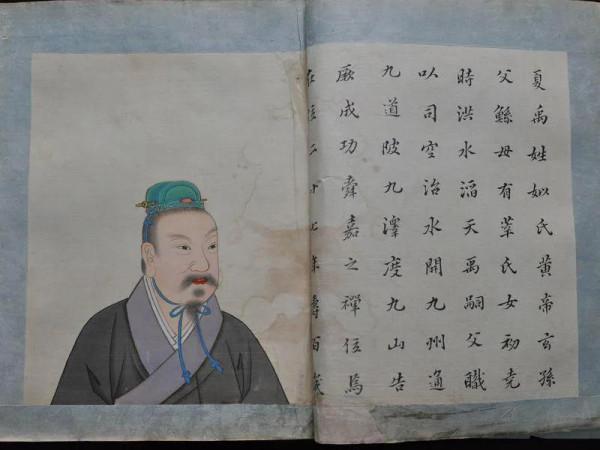 夏禹姓姒氏黄帝玄孫
父鲧母有莘氏女初堯
時洪水滔天禹嗣父職
以司空治水開九州通
九道陂九澤度九山告
厥成功舜嘉之禪位焉
在位二十七年壽百歲